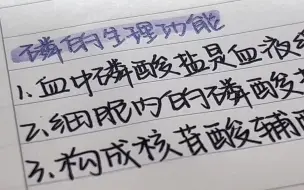 磷的生理功能
1.血中磷酸盐是血液
2.细胞内的磷酸
3.构成核苷酸辅